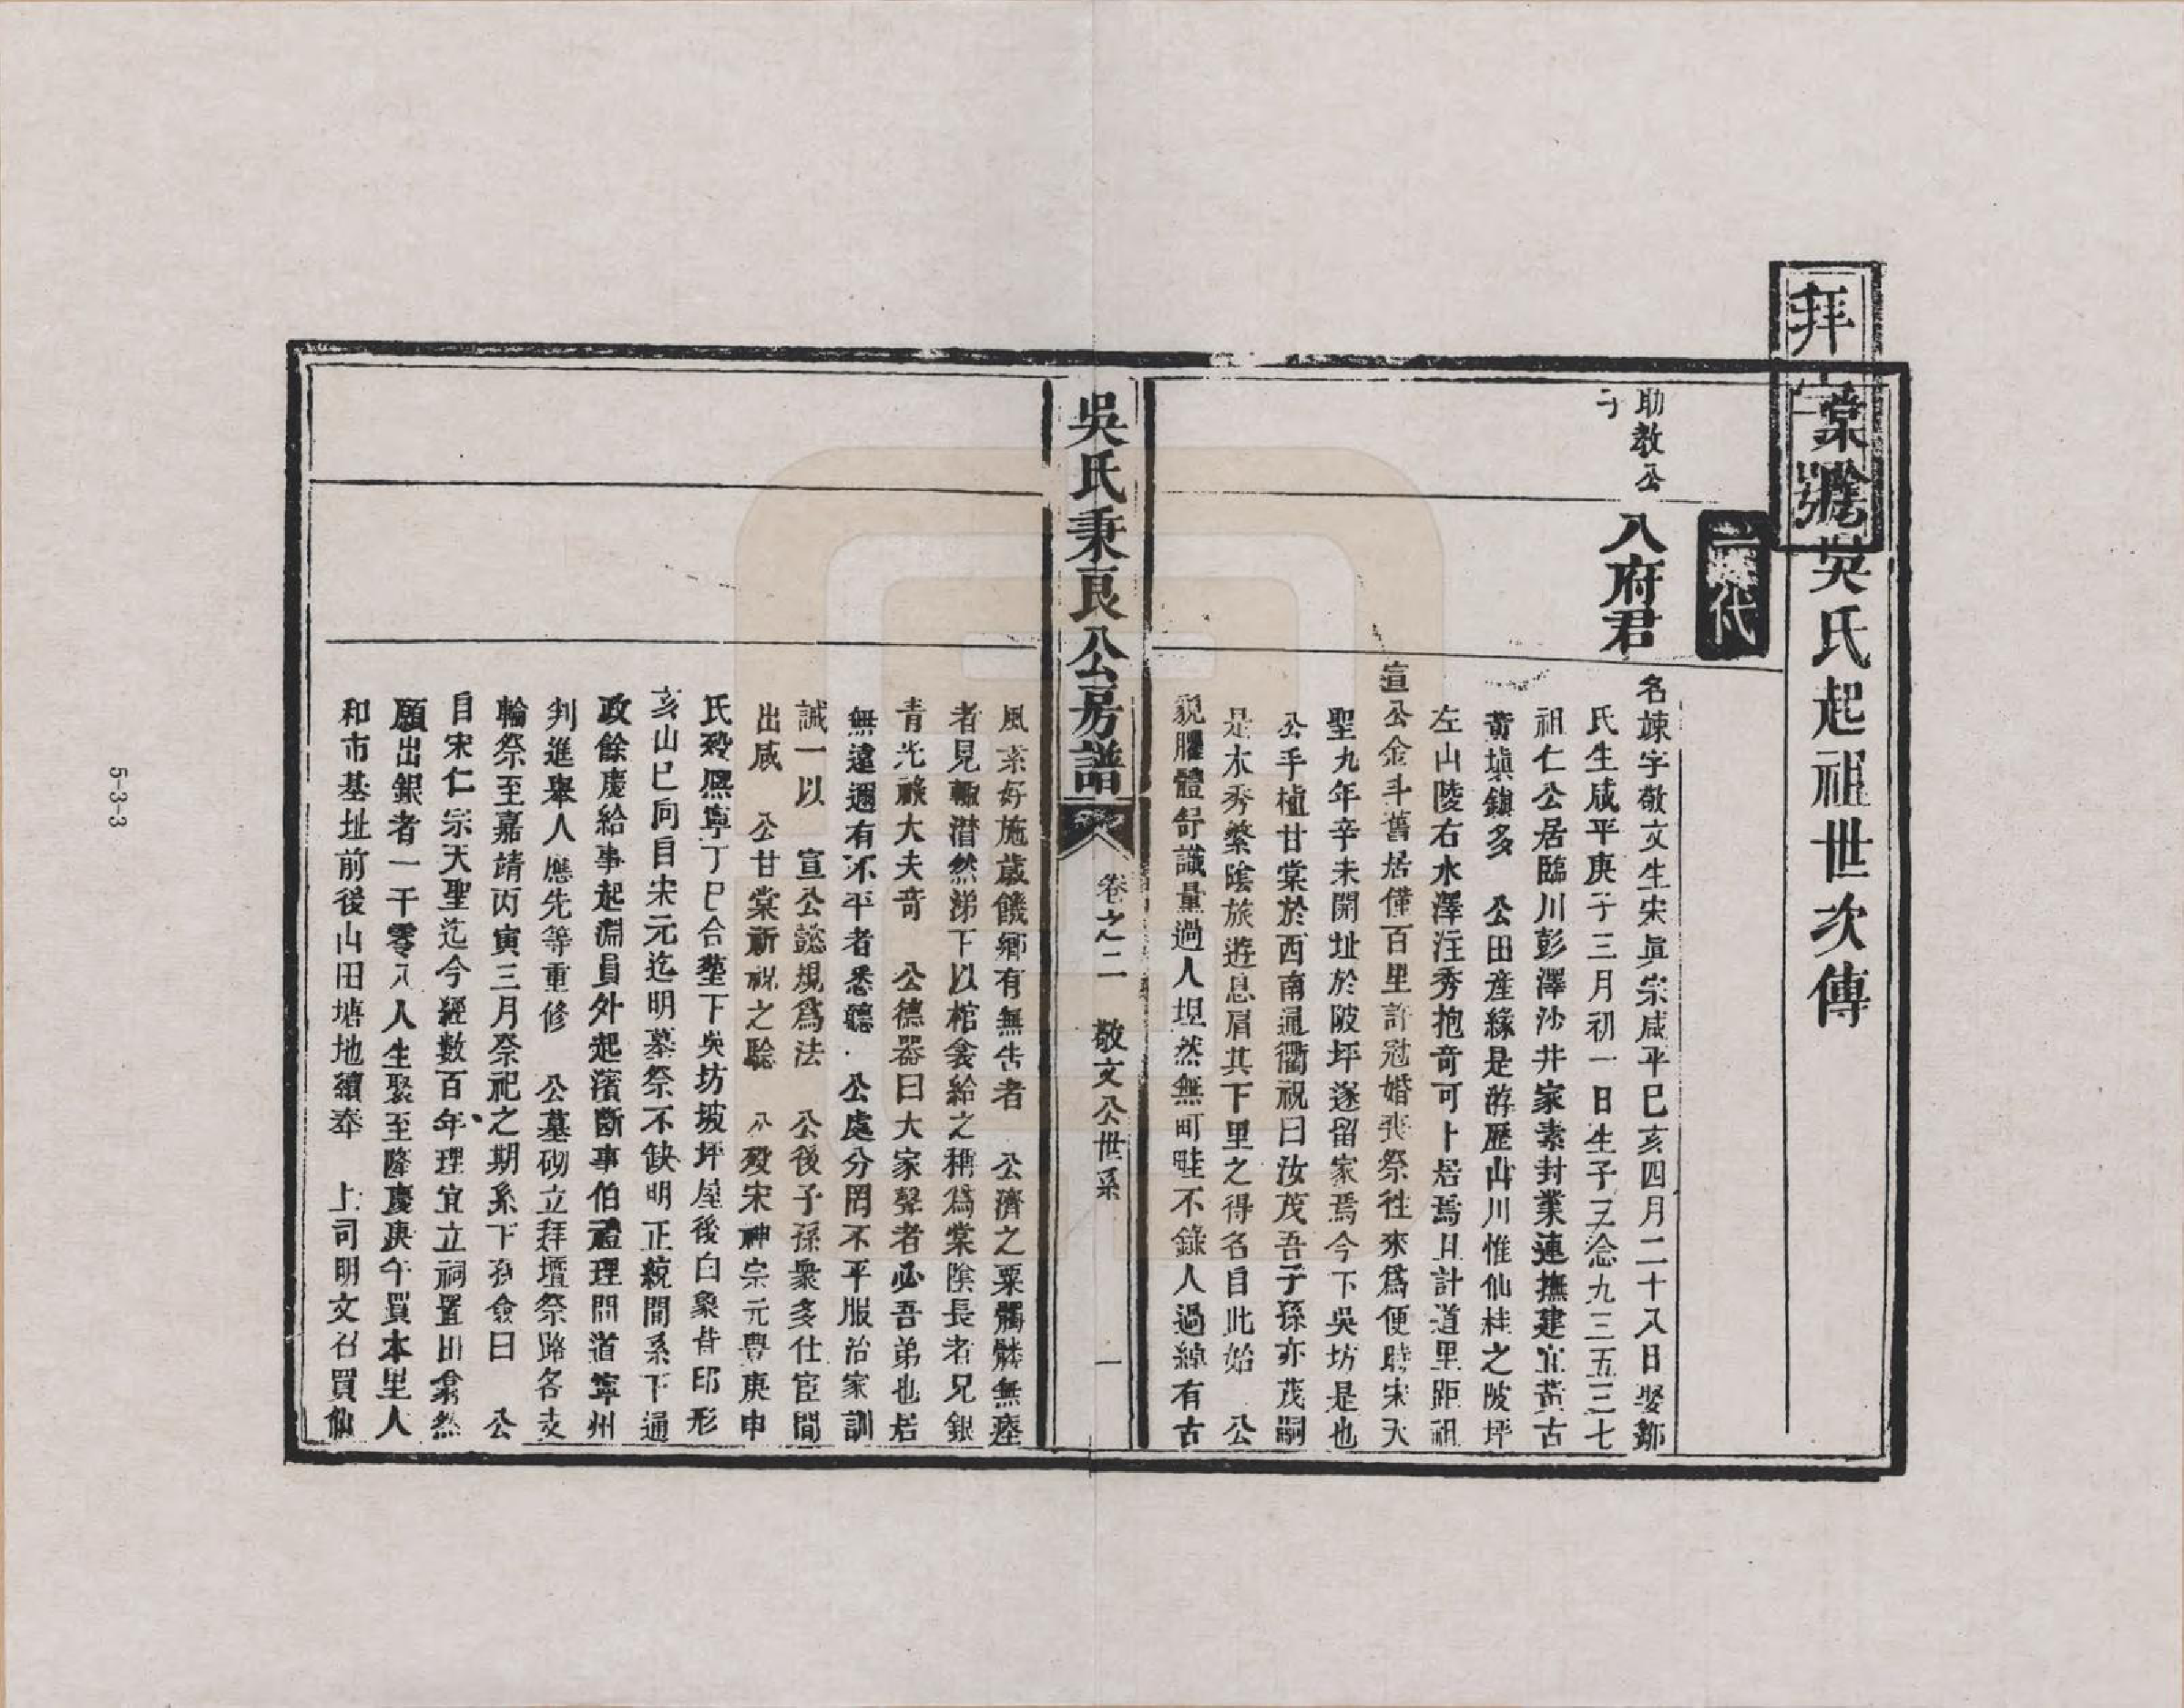 棠蔭吳氏起祖世次傳
拜
號
代
助教公
子
八府君
名竦字敬文生宋眞宗咸平己亥四月二十八日娶鄒
氏生咸平庚子三月初一日生子三念九三五三七
祖仁公居臨川彭澤沙井家素封業連撫建宜黃古
黃塡鎮多 公田產緣是游歷山川惟仙桂之陂坪
左山陵右水澤注秀抱奇可卜居焉且計道里距祖
宣公金斗舊居僅百里許冠婚喪祭往來爲便時宋天
聖九年辛未開址於陂坪遂留家焉今下吳坊是也
公手植甘棠於西南通衢祝曰汝茂吾子孫亦茂嗣
是木秀繁陰旅遊息肩其下里之得名自此始 公
貌臞體舒識量過人坦然無町畦不錄人過綽有古
吳氏秉良公房譜
卷之二 敬文公世系 一
風素好施歲饑鄉有無告者 公濟之粟髑髏無瘞
者見輒潸然涕下以棺衾給之稱爲棠陰長者兄銀
青光祿大夫奇 公德器曰大家聲者必吾弟也居
無遠邇有不平者悉聽 公處分罔不平服治家訓
誡一以 宣公懿規爲法 公後子孫衆多仕宦間
出咸 公甘棠祈祝之驗 公歿宋神宗元豐庚申
氏歿熙寧丁巳合塟下吳坊坡坪屋後白象昔印形
亥山巳向自宋元迄明墓祭不缺明正統間系下通
政餘慶給事起淵員外起濱斷事伯禮理問道寧州
判進舉人應先等重修 公墓砌立拜壇祭路各支
輪祭至嘉靖丙寅三月祭祀之期系下孫僉曰 公
自宋仁宗天聖迄今經數百年理宜立祠置田翕然
願出銀者一千零八人生聚至隆慶庚午買本里人
和市基址前後山田塘地續奉 上司明文召買仙
5-3-3